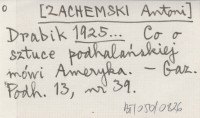 o
[ZACHEMSKI Antoni]
Drabik 1925... Co o
sztuce podhalańskiej
mówi Ameryka. – Gaz.
Podh. 13, nr 39.